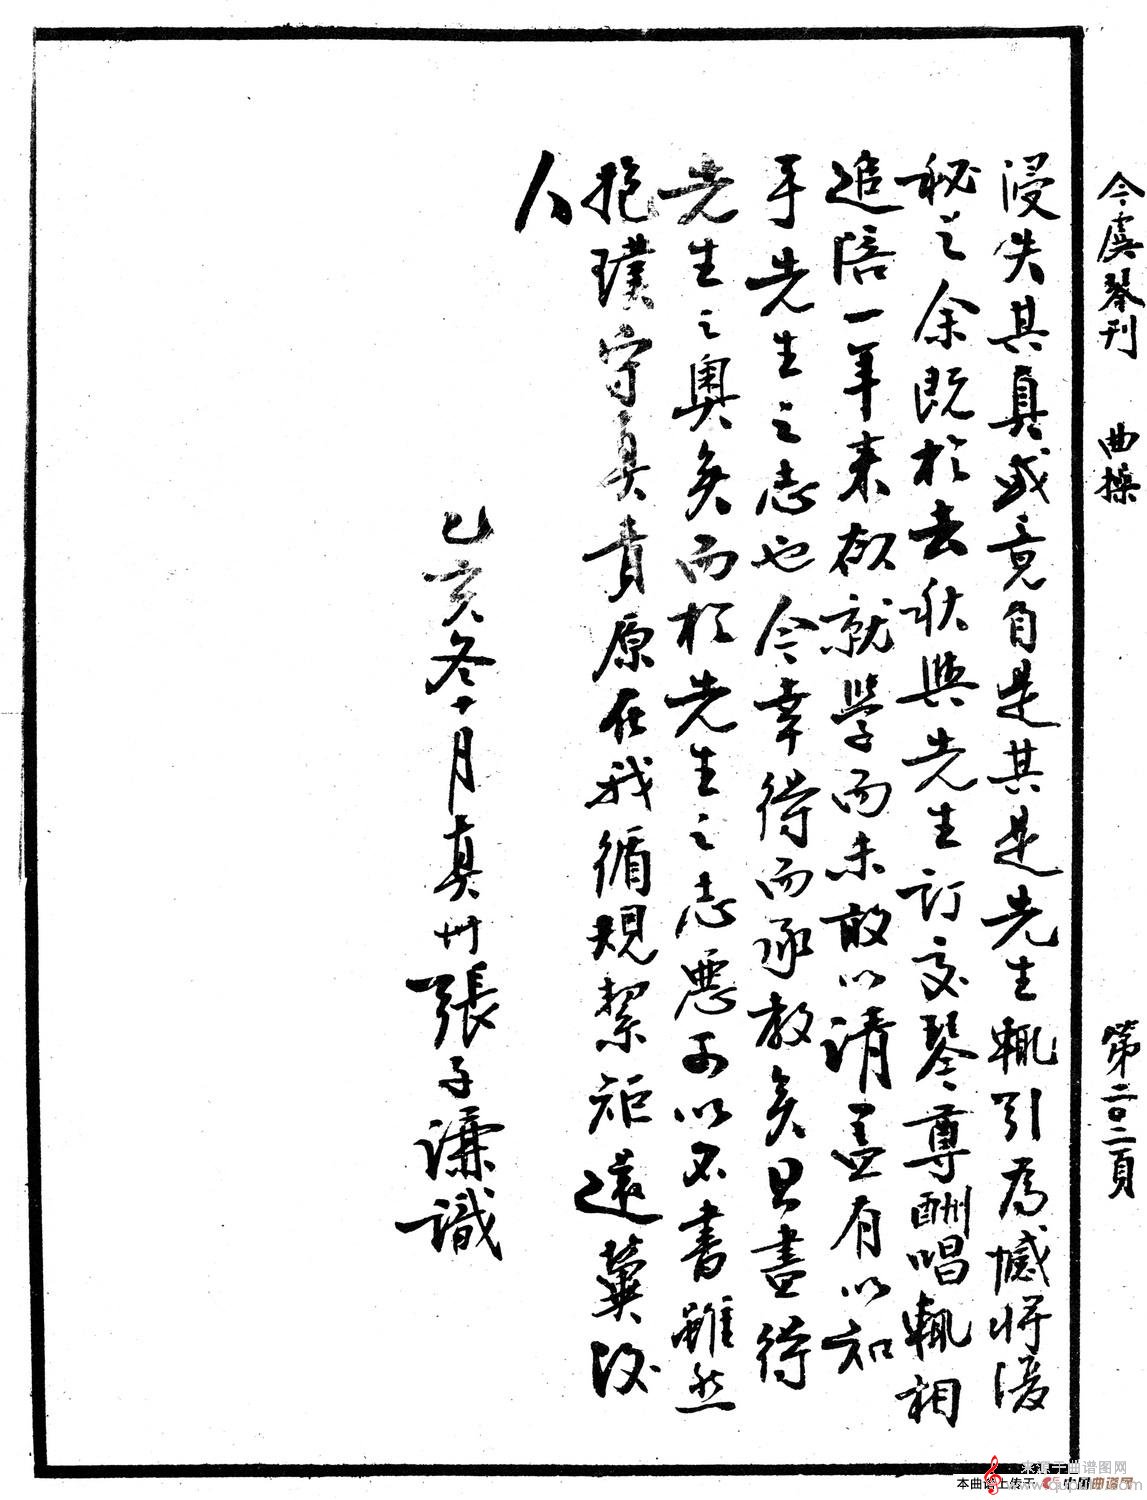 今虞琴刊 曲操 第二〇二頁
浸失其真或竟自是其是先生輒引為憾將湲
秘之余既於去秋與先生訂交琴尊酬唱輒相
追陪一年来欲就學而未敢以請蓋有以知
乎先生之志也今幸得而承教矣且盡得
先生之奧矣而於先生之志惡可以不書雖然
抱璞守真責原在我循規絜矩還冀後
人
乙亥冬十月真州張子謙識
本曲谱上传于 中国曲谱网
来源于曲谱图网